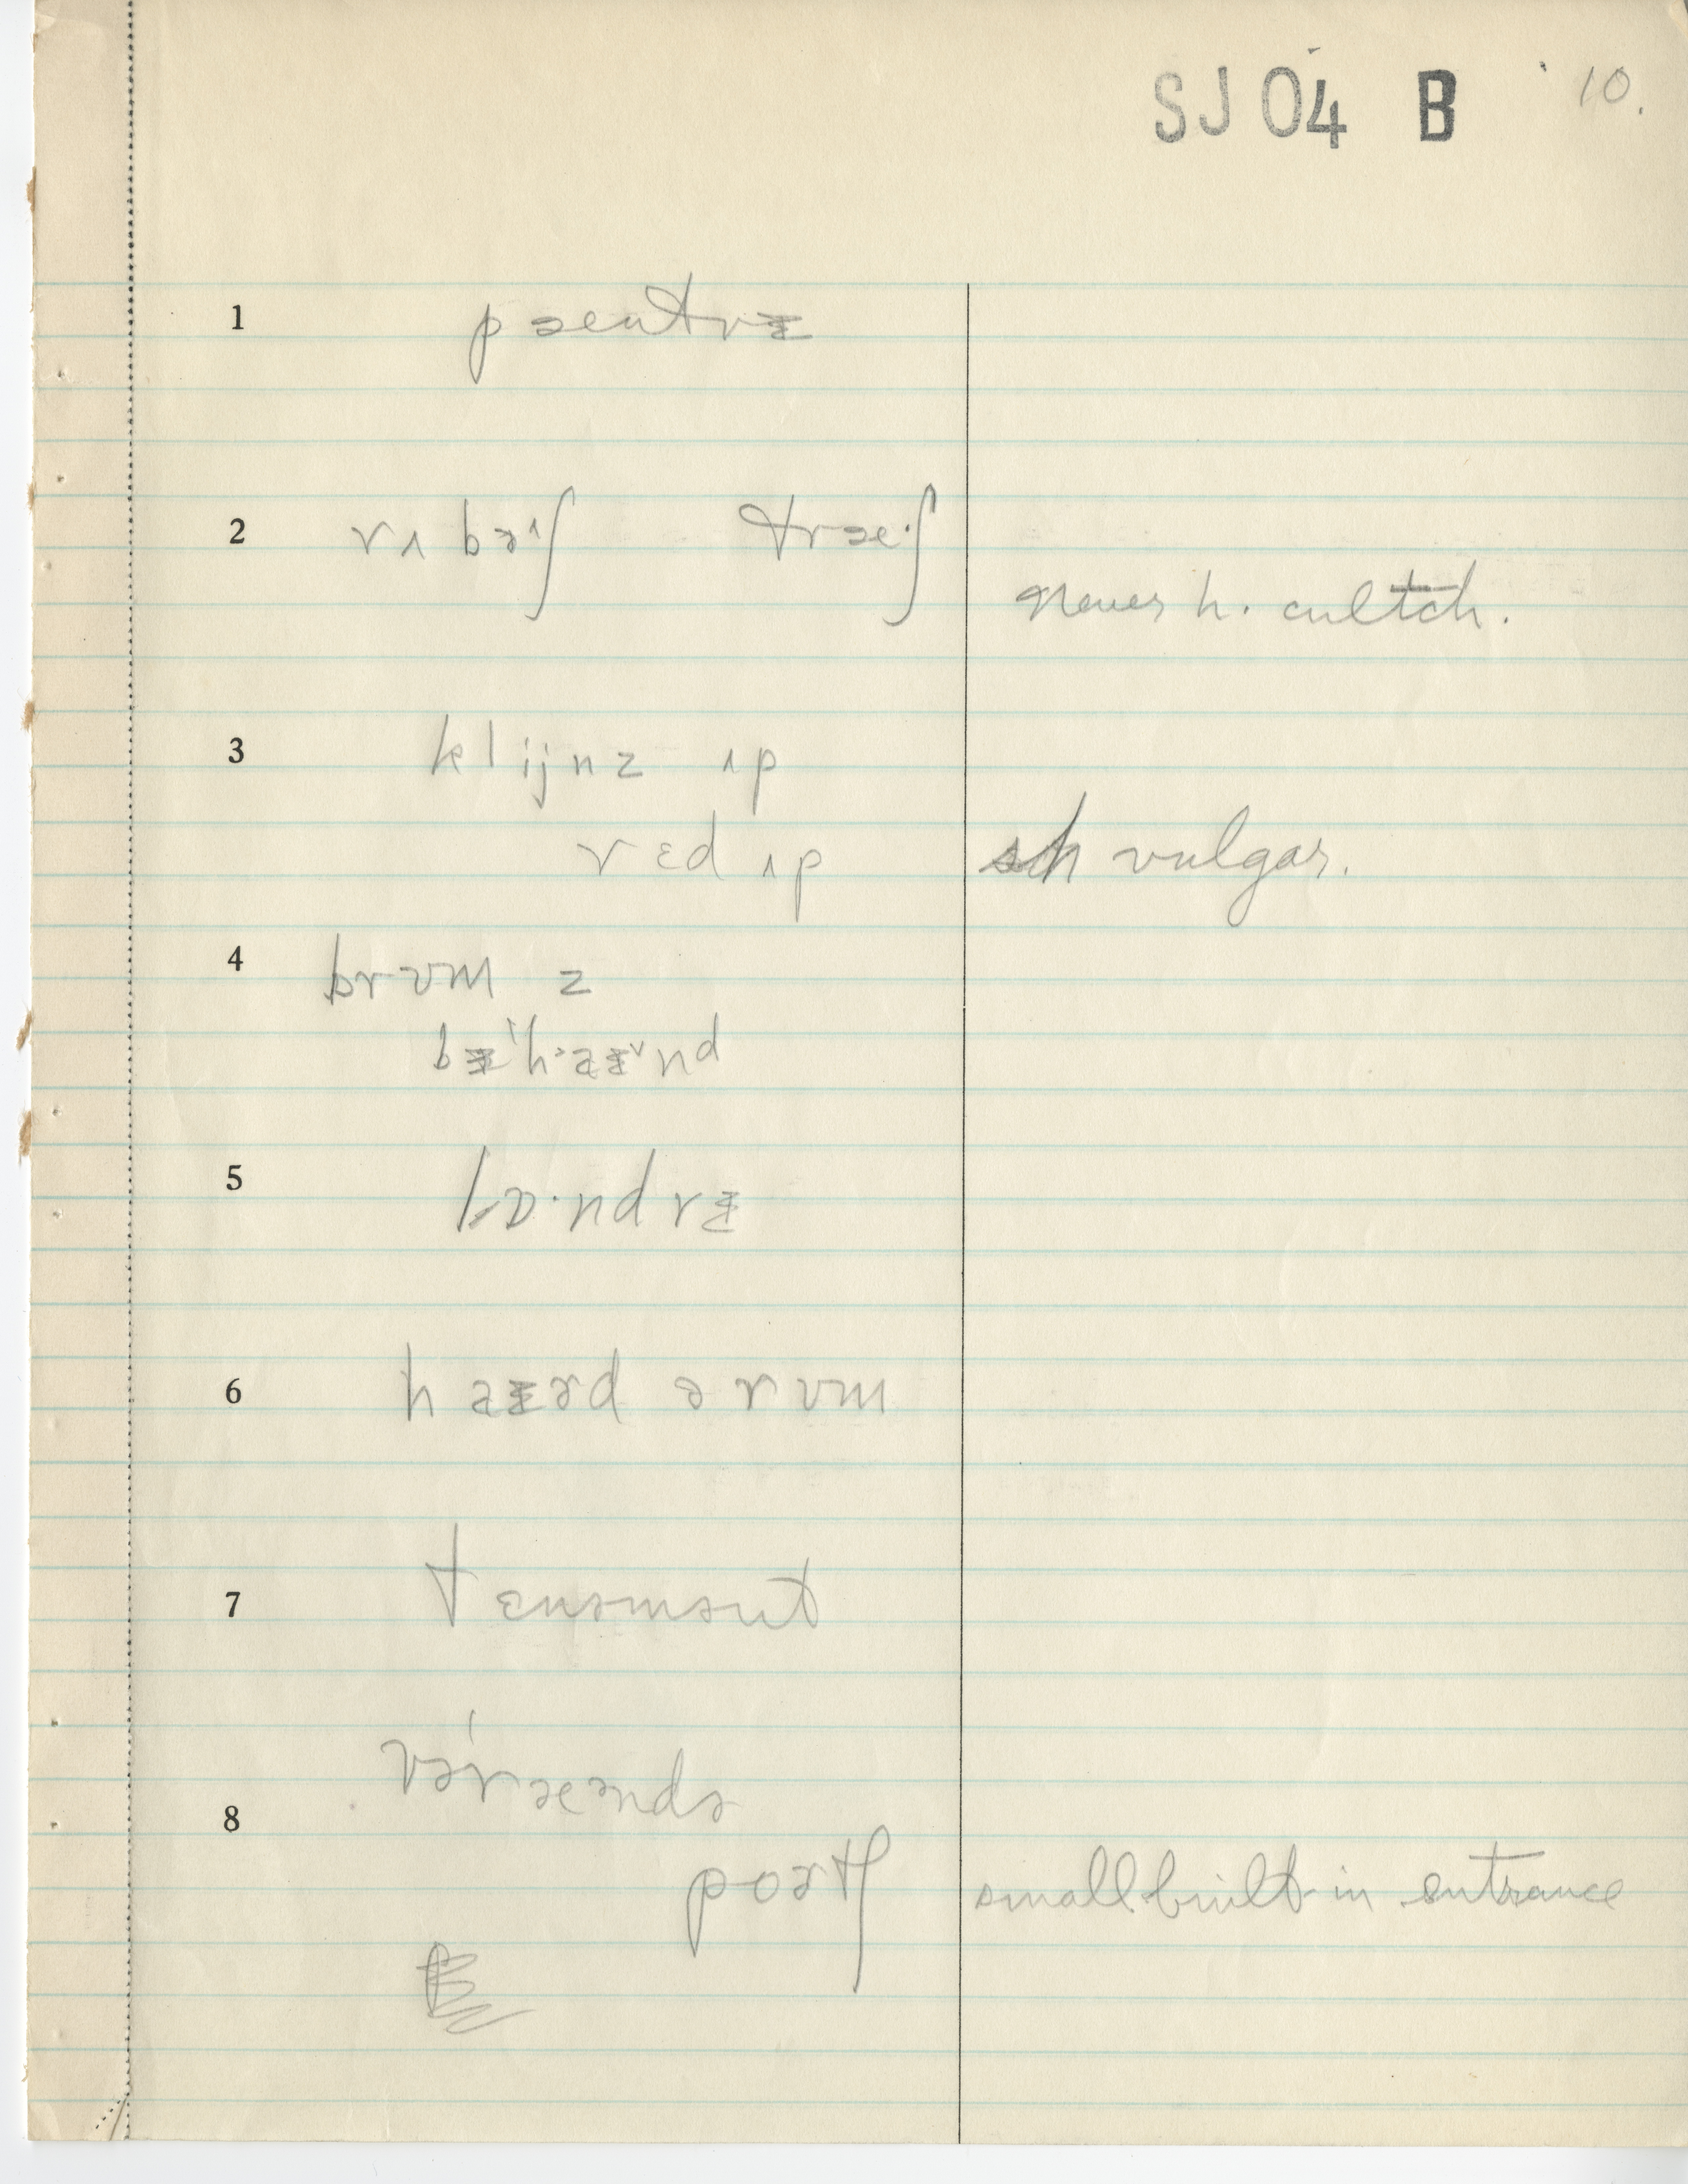 SJ 04 B 10.
1 pæntrɪ
2 rʌbəɪʃ træ·ʃ
never h. cultch.
3 klijnz ʌp
rɛd ʌp sh vulgar.
4 brʊm z
bɪˈhaɪnd
5 lɒ·ndrɪ
6 haɪəd ə rʊm
7 tɛnəmənt
vəræəndə
8 poətʃ small built-in entrance